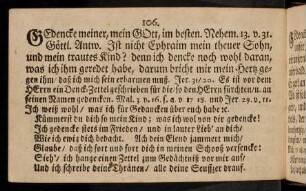 106.
GEdencke meiner, mein GOtt, im besten. Nehem. 13. v. 31.
Göttl. Antw. Ist nicht Ephraim mein theuer Sohn,
und mein trautes Kind? denn ich dencke noch wohl daran,
was ich ihm geredet habe, darum bricht mir mein Hertz ge-
gen ihm, daß ich mich sein erbarmen muß. Jer. 31/20. Es ist vor dem
HErrn ein Denck-Zettel geschrieben für die/ so den HErrn fürchten/ u. an
seinen Namen gedencken. Mal. 3 v. 16. s. a. v 17. und Jer. 29. v. 11.
Ich weiß wohl/ was ich für Gedancken über euch habe ꝛc.
Kümmerst du dich so mein Kind; was ich wol von dir gedencke!
Ich gedencke stets im Frieden/ und in lauter Lieb' an dich;
Wie ich ewig dich bedacht. Ach dein Elend jammert mich/
Glaube/ daß ich fort und fort dich in meinen Schooß versencke:
Sieh'/ ich hange einen Zettel zum Gedächtniß vor mir auf/
Und ich schreibe deine Thränen/ alle deine Seufzer drauf.